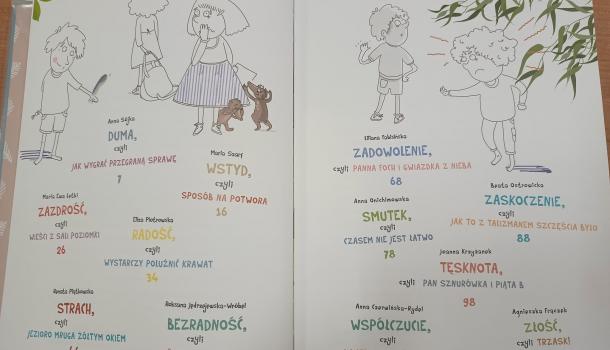 Anna Sójka
DUMA,
czyli
JAK WYGRAĆ PRZEGRANĄ SPRAWĘ
7
Maria Szarf
WSTYD,
czyli
SPOSÓB NA POTWORA
16
Maria Ewa Letki
ZAZDROŚĆ,
czyli
WIEŚCI Z SALI POZIOMKI
26
Eliza Piotrowska
RADOŚĆ,
czyli
WYSTARCZY POŁUŻNIĆ KRAWAT
34
Renata Piątkowska
STRACH,
czyli
JEZIORO MRUGA ŻÓŁTYM OKIEM
Roksana Jędrzejewska-Wróbel
BEZRADNOŚĆ,
czyli
Liliana Fabisińska
ZADOWOLENIE,
czyli PANNA FOCH I GWIAZDKA Z NIEBA
68
Anna Onichimowska
SMUTEK,
czyli
CZASEM NIE JEST ŁATWO
78
Beata Ostrowicka
ZASKOCZENIE,
czyli
JAK TO Z TALIZMANEM SZCZĘŚCIA BYŁO
88
Joanna Krzyżanek
TĘSKNOTA,
czyli PAN SZNURÓWKA I PIĄTA B
98
Anna Czerwińska-Rydel
WSPÓŁCZUCIE,
czyli
Agnieszka Frączek
ZŁOŚĆ,
czyli TRZASK!